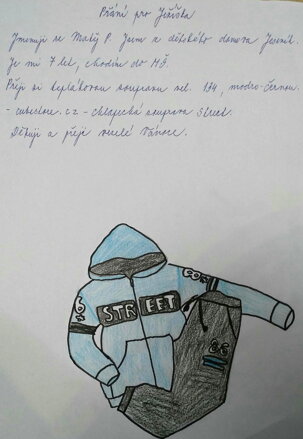 Přání pro Ježíška
Jmenuji se Matěj P. Jsem z dětského domova Jeseník.
Je mi 7 let, chodím do MŠ.
Přeji si teplákovou soupravu vel. 134, modro-černou.
- cz - chlapecká souprava Street.
Děkuji a přeji veselé Vánoce.
STREET
86